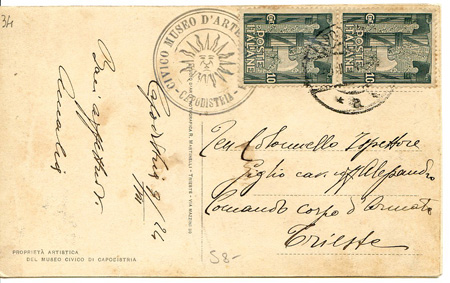 34
CIVICO MUSEO D'ARTE
CAPODISTRIA
POSTE ITALIANE
10 Cent
POSTE ITALIANE
10 Cent
Baci affettuosi
Amalia
Capodistria 9/
Colonnello Ispettore
Giglio cav. Alessandro
Comando corpo d'Armata
Trieste
58-
R. MARTINELLI - TRIESTE - VIA MAZZINI
PROPRIETÀ ARTISTICA
DEL MUSEO CIVICO DI CAPODISTRIA